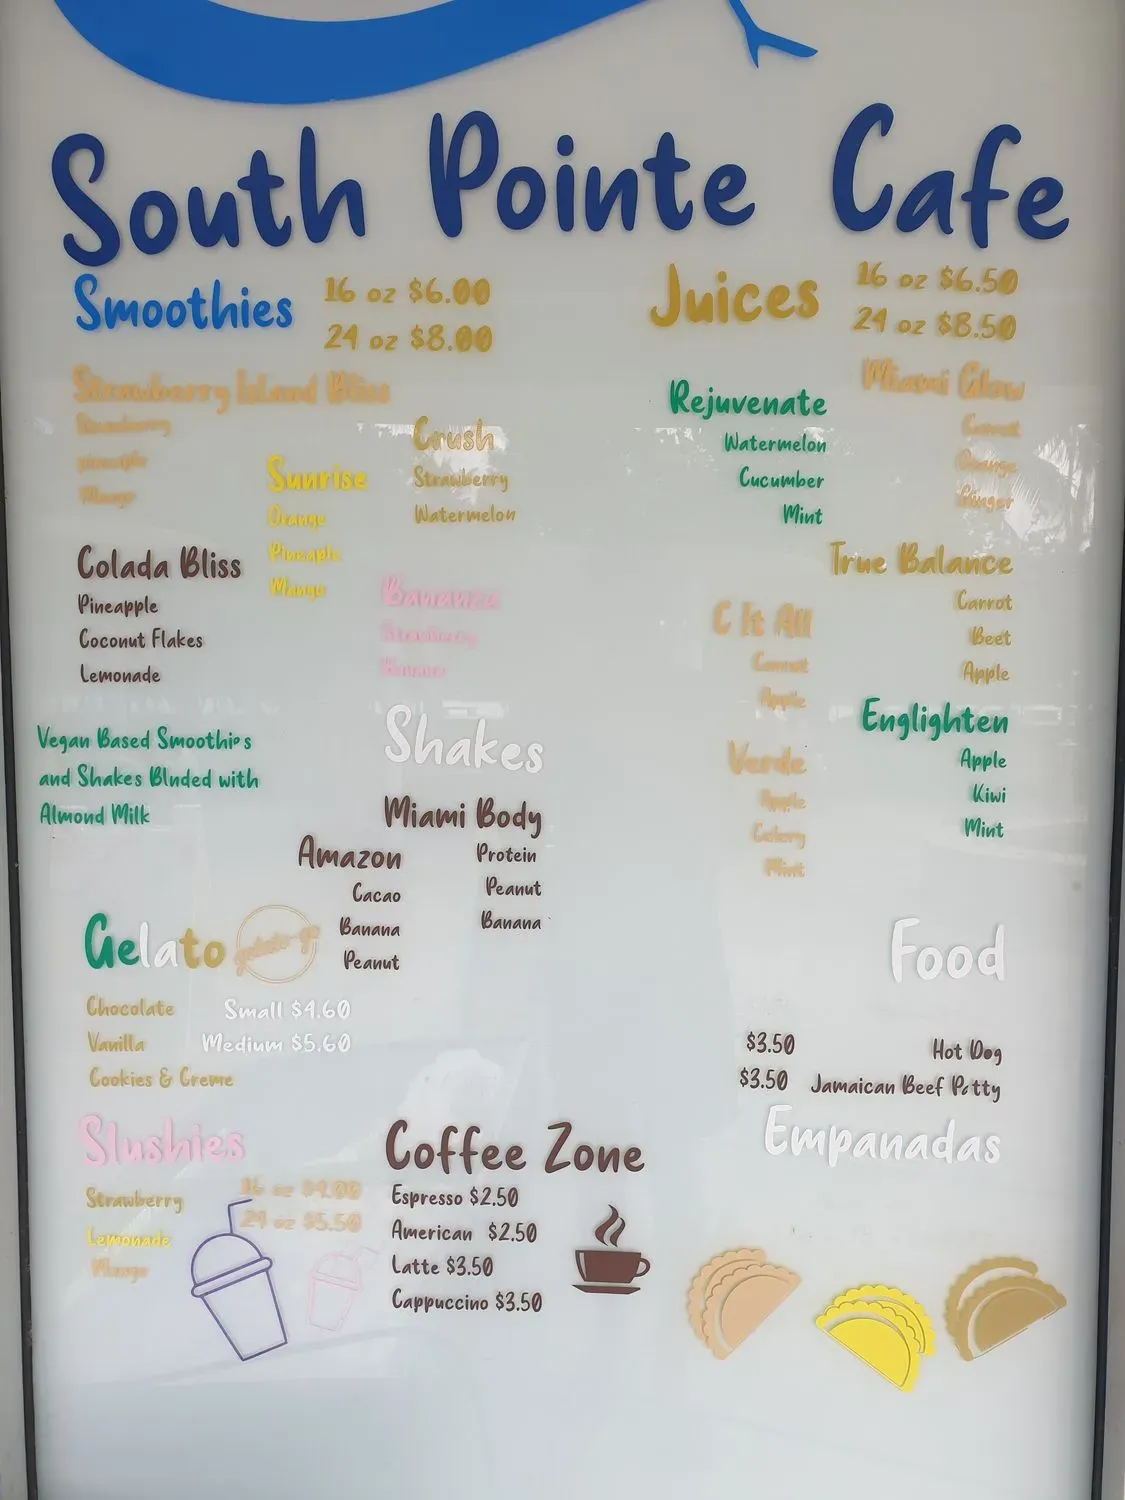 South Pointe Cafe
Smoothies
16 oz $6.00
24 oz $8.00
Strawberry Island Bliss
Strawberry
pineapple
Mango
Sunrise
Orange
Pineaple
Mango
Crush
Strawberry
Watermelon
Colada Bliss
Pineapple
Coconut Flakes
Lemonade
Strawberry
Banana
Vegan Based Smoothies
and Shakes Blnded with
Almond Milk
Shakes
Miami Body
Protein
Peanut
Banana
Amazon
Cacao
Banana
Peanut
Gelato
gelato-go
Chocolate
Vanilla
Cookies & Creme
Small $4.60
Medium $5.60
Slushies
16 oz $4.00
24 oz $5.50
Strawberry
Lemonade
Mango
Coffee Zone
Espresso $2.50
American $2.50
Latte $3.50
Cappuccino $3.50
Juices
16 oz $6.50
24 oz $8.50
Rejuvenate
Watermelon
Cucumber
Mint
Miami Glow
Carrot
Orange
Ginger
True Balance
Carrot
Beet
Apple
C It All
Carrot
Apple
Englighten
Apple
Kiwi
Mint
Verde
Apple
Celery
Mint
Food
$3.50 Hot Dog
$3.50 Jamaican Beef Patty
Empanadas